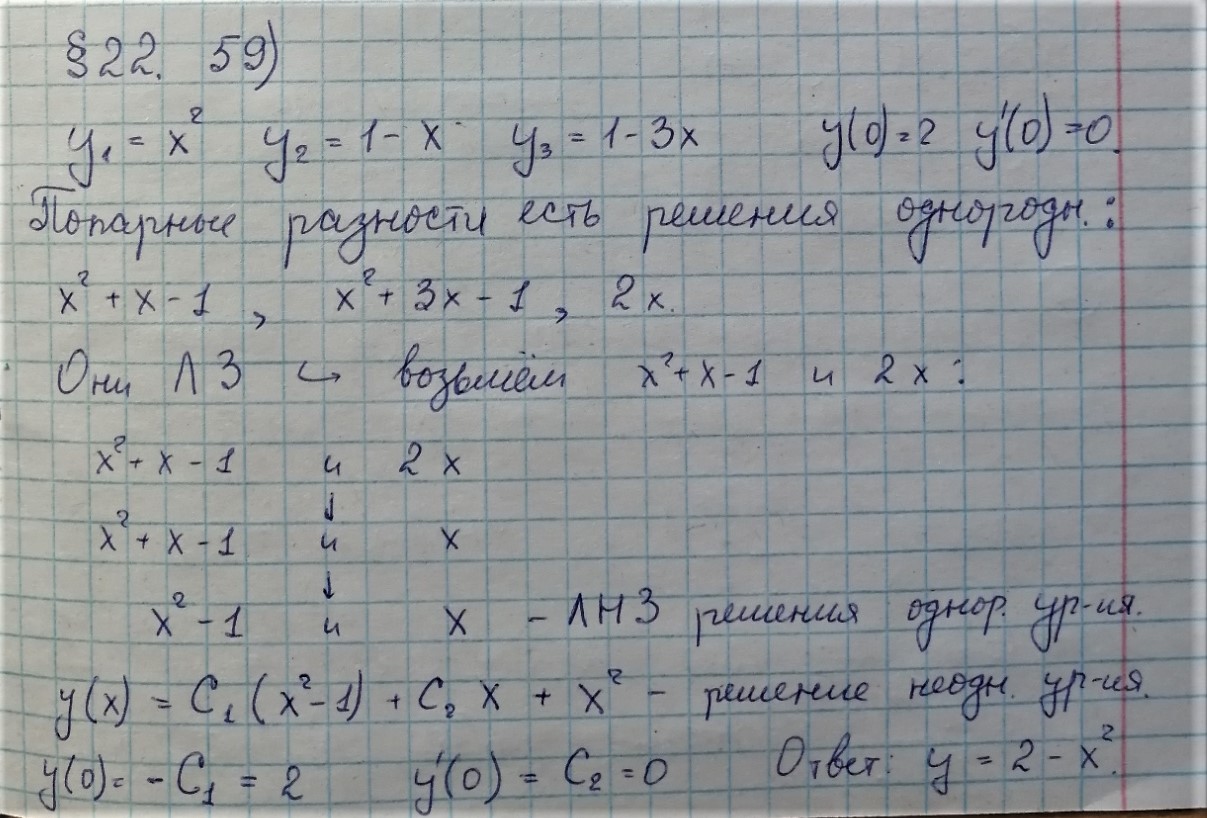 §22. 59)
y₁ = x² y₂ = 1 - x y₃ = 1 - 3x y(0) = 2 y'(0) = 0.
Попарные разности есть решения однородн.:
x² + x - 1 , x² + 3x - 1 , 2x.
Они ЛЗ ↪ возьмём x² + x - 1 и 2x :
x² + x - 1 и 2x
↓
x² + x - 1 и x
↓
x² - 1 и x - ЛНЗ решения однор. ур-ия.
y(x) = C₁ (x² - 1) + C₂ x + x² - решение неодн. ур-ия.
y(0) = - C₁ = 2 y'(0) = C₂ = 0 Ответ: y = 2 - x².